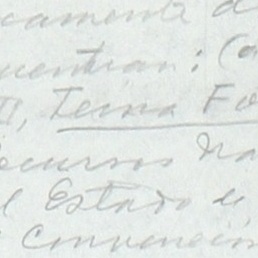 camente d
cuentran: (a
II, Tema Fo
Recursos Na
el Estado de
Convención